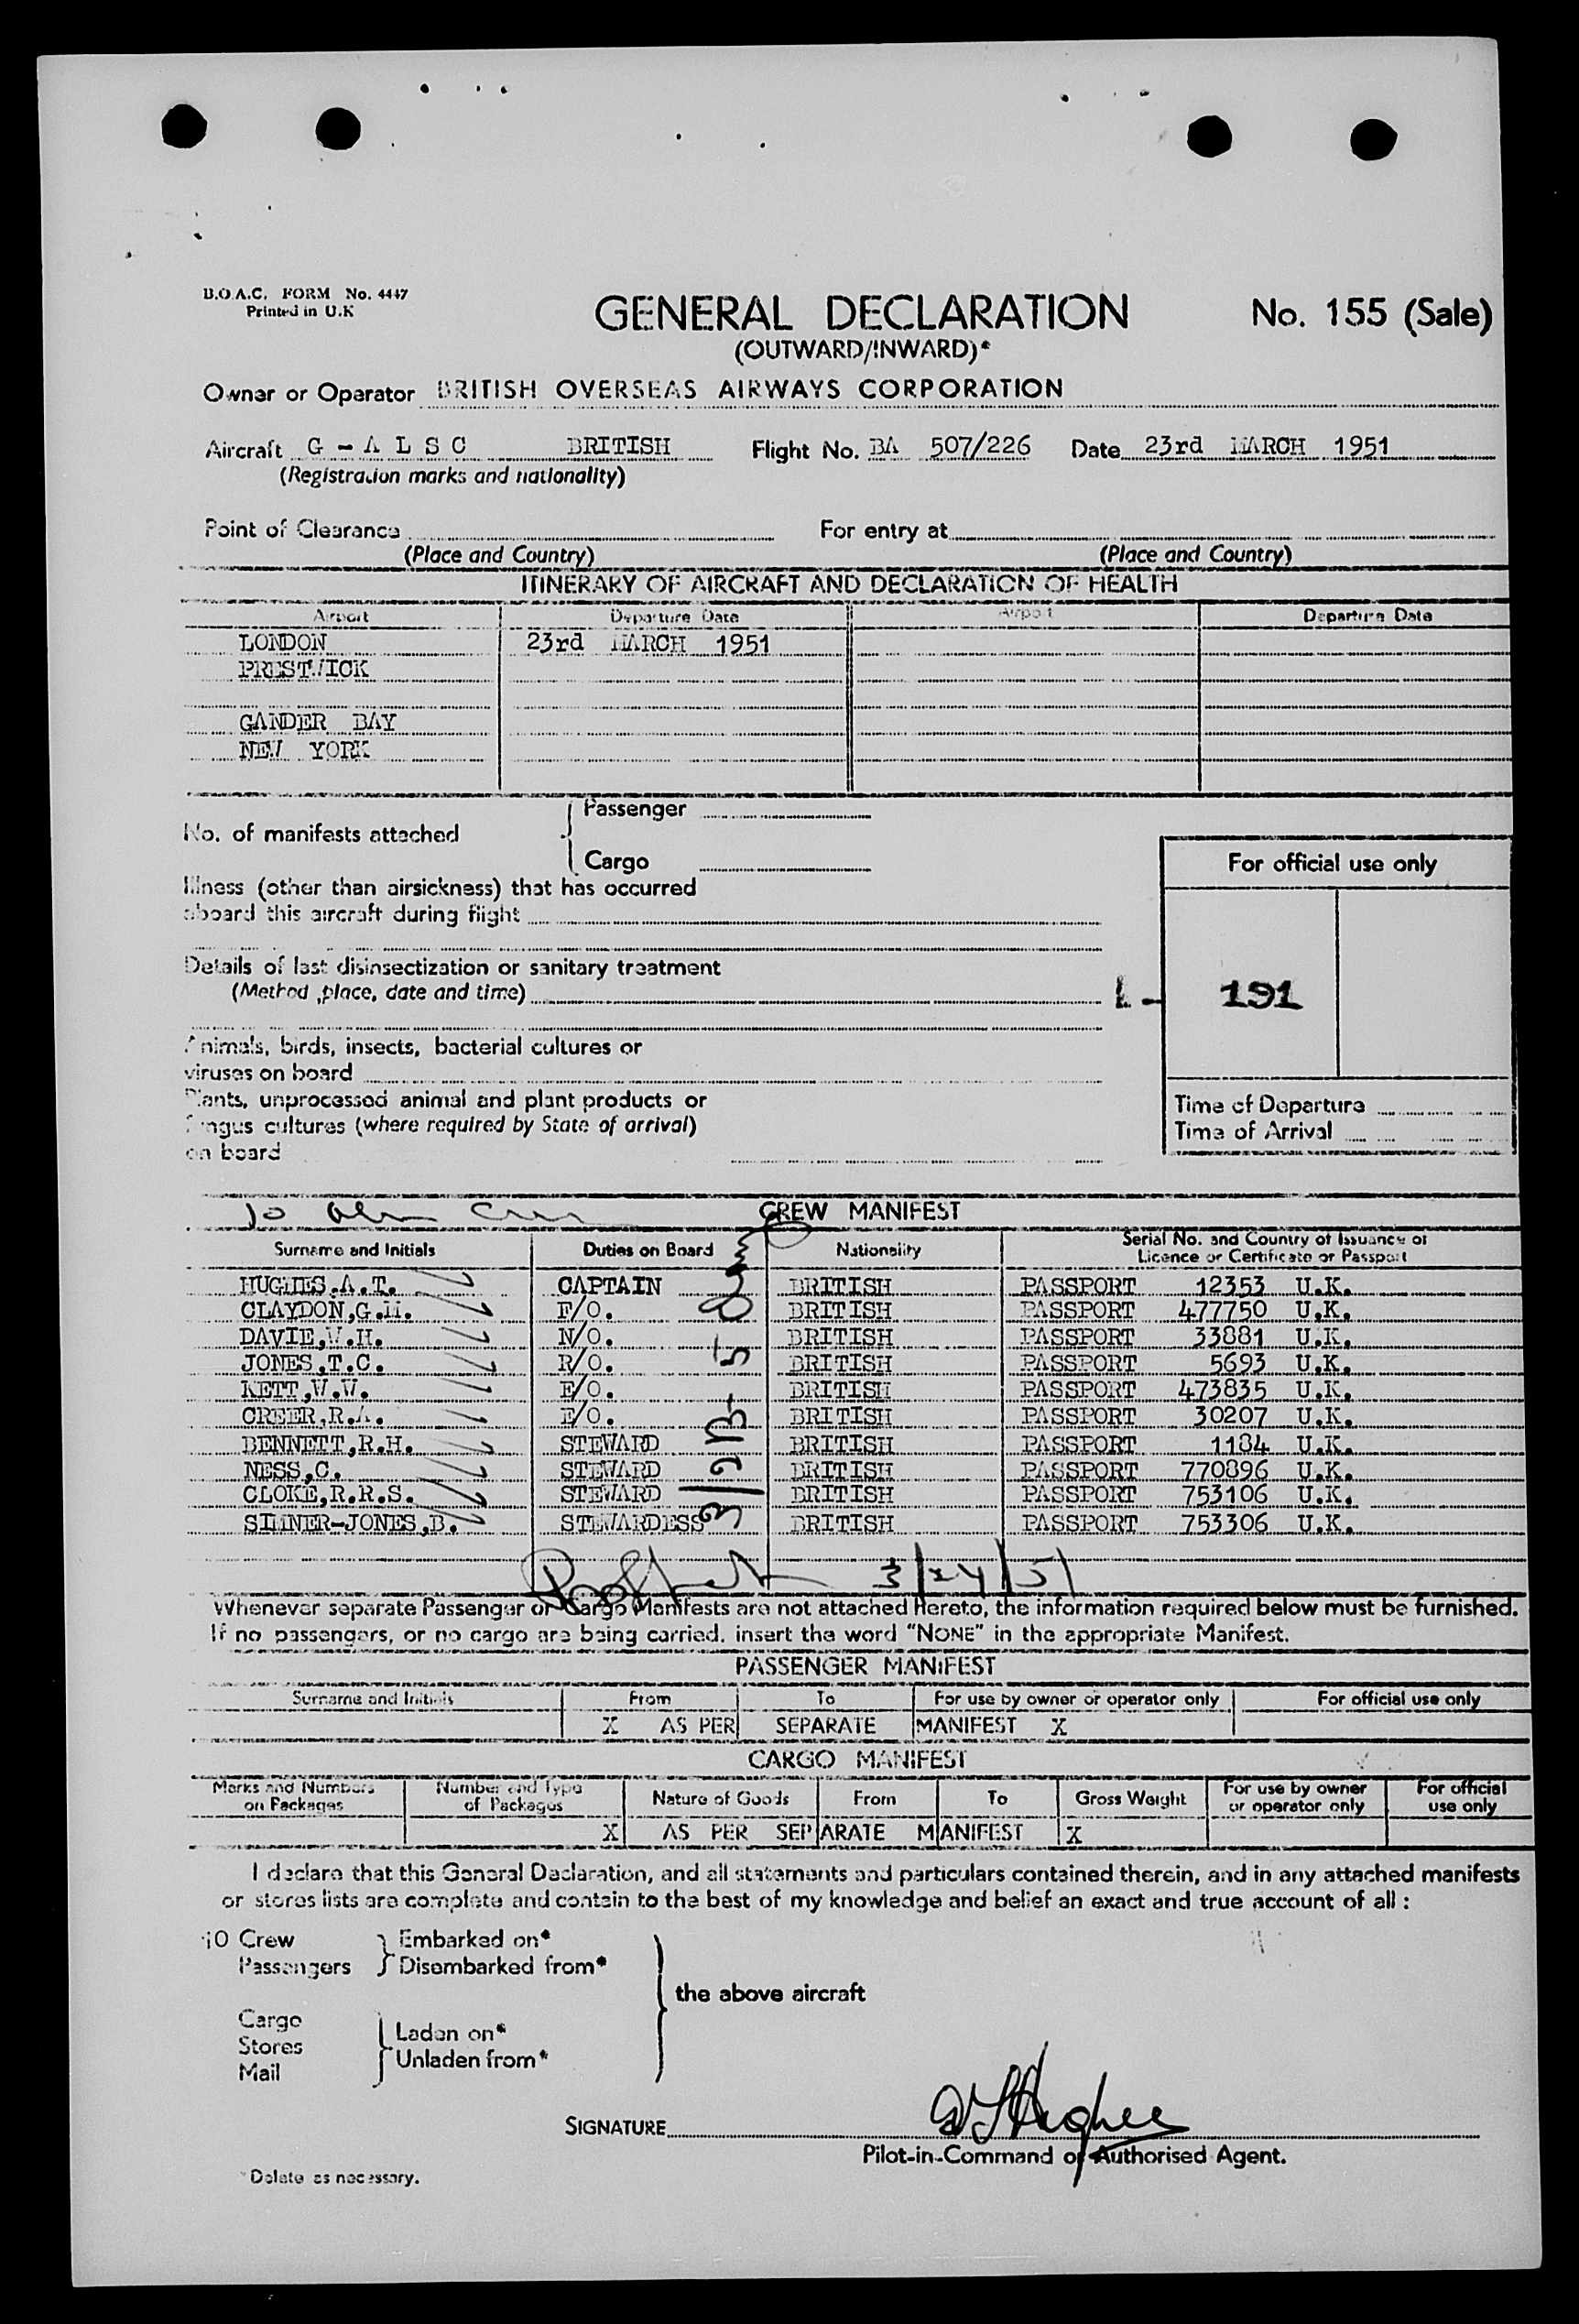 B.O.A.C. FORM No. 4447
Printed in U.K
GENERAL DECLARATION No. 155 (Sale)
(OUTWARD/INWARD)*
Owner or Operator BRITISH OVERSEAS AIRWAYS CORPORATION
Aircraft G - A L S C BRITISH Flight No. BA 507/226 Date 23rd MARCH 1951
(Registration marks and nationality)
Point of Clearance For entry at
(Place and Country) (Place and Country)
ITINERARY OF AIRCRAFT AND DECLARATION OF HEALTH
Airport Departure Date Airport Departure Date
LONDON 23rd MARCH 1951
PRESTWICK
GANDER BAY
NEW YORK
No. of manifests attached { Passenger
Cargo
Illness (other than airsickness) that has occurred
aboard this aircraft during flight
Details of last disinsectization or sanitary treatment
(Method ,place, date and time)
Animals, birds, insects, bacterial cultures or
viruses on board
Plants, unprocessed animal and plant products or
fungus cultures (where required by State of arrival)
on board
For official use only
L - 191
Time of Departure
Time of Arrival
10 CREW MANIFEST
Surname and Initials Duties on Board Nationality Serial No. and Country of Issuance of Licence or Certificate or Passport
HUGHES.A.T. CAPTAIN BRITISH PASSPORT 12353 U.K.
CLAYDON,G.M. F/O. BRITISH PASSPORT 477750 U.K.
DAVIE,W.H. N/O. BRITISH PASSPORT 33881 U.K.
JONES,T.C. R/O. BRITISH PASSPORT 5693 U.K.
KETT,W.W. E/O. BRITISH PASSPORT 473835 U.K.
CREER,R.A. E/O. BRITISH PASSPORT 30207 U.K.
BENNETT,R.H. STEWARD BRITISH PASSPORT 1184 U.K.
NESS,C. STEWARD BRITISH PASSPORT 770896 U.K.
CLOKE,R.R.S. STEWARD BRITISH PASSPORT 753106 U.K.
SIMNER-JONES,B. STEWARDESS BRITISH PASSPORT 753306 U.K.
3/24/51
Whenever separate Passenger or Cargo Manifests are not attached hereto, the information required below must be furnished.
If no passengers, or no cargo are being carried, insert the word "NONE" in the appropriate Manifest.
PASSENGER MANIFEST
Surname and Initials From To For use by owner or operator only For official use only
X AS PER SEPARATE MANIFEST X
CARGO MANIFEST
Marks and Numbers on Packages Number and Type of Packages Nature of Goods From To Gross Weight For use by owner or operator only For official use only
X AS PER SEPARATE MANIFEST X
I declare that this General Declaration, and all statements and particulars contained therein, and in any attached manifests
or stores lists are complete and contain to the best of my knowledge and belief an exact and true account of all :
10 Crew } Embarked on*
Passengers Disembarked from*
the above aircraft
Cargo
Stores } Laden on*
Mail Unladen from*
SIGNATURE A T Hughes
Pilot-in-Command or Authorised Agent.
*Delete as necessary.